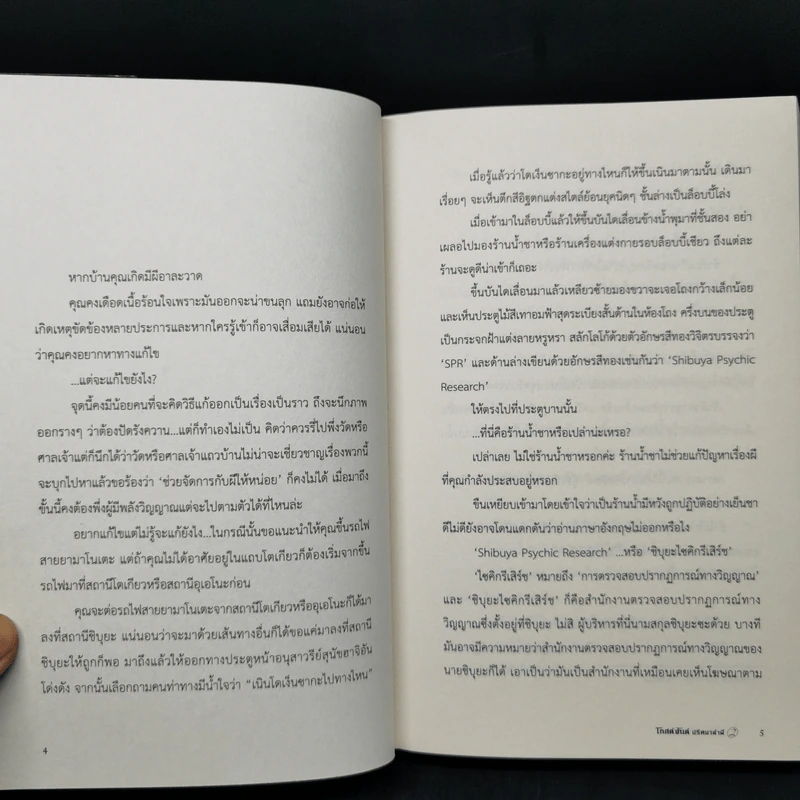 หากบ้านคุณเกิดมีผีอาละวาด
คุณคงเดือดเนื้อร้อนใจเพราะมันออกจะน่าขนลุก แถมยังอาจก่อให้
เกิดเหตุขัดข้องหลายประการและหากใครรู้เข้าก็อาจเสื่อมเสียได้ แน่นอน
ว่าคุณคงอยากหาทางแก้ไข
...แต่จะแก้ไขยังไง?
จุดนี้คงมีน้อยคนที่จะคิดวิธีแก้ออกเป็นเรื่องเป็นราว ถึงจะนึกภาพ
ออกรางๆ ว่าต้องปัดรังควาน...แต่ก็ทำเองไม่เป็น คิดว่าควรรี่ไปพึ่งวัดหรือ
ศาลเจ้าแต่ก็นึกได้ว่าวัดหรือศาลเจ้าแถวบ้านไม่น่าจะเชี่ยวชาญเรื่องพวกนี้
จะบุกไปหาแล้วขอร้องว่า 'ช่วยจัดการกับผีให้หน่อย' ก็คงไม่ได้ เมื่อมาถึง
ขั้นนี้คงต้องพึ่งผู้มีพลังวิญญาณแต่จะไปตามตัวได้ที่ไหนล่ะ
อยากแก้ไขแต่ไม่รู้จะแก้ยังไง...ในกรณีนั้นขอแนะนำให้คุณขึ้นรถไฟ
สายยามาโนเตะ แต่ถ้าคุณไม่ได้อาศัยอยู่ในแถบโตเกียวก็ต้องเริ่มจากขึ้น
รถไฟมาที่สถานีโตเกียวหรือสถานีอุเอโนะก่อน
คุณจะต่อรถไฟสายยามาโนเตะจากสถานีโตเกียวหรืออุเอโนะก็ได้มา
ลงที่สถานีชิบุยะ แน่นอนว่าจะมาด้วยเส้นทางอื่นก็ได้ขอแค่มาลงที่สถานี
ชิบุยะให้ถูกก็พอ มาถึงแล้วให้ออกทางประตูหน้าอนุสาวรีย์สุนัขฮาจิอัน
โด่งดัง จากนั้นเลือกถามคนท่าทางมีน้ำใจว่า "เนินโดเก็นซากะไปทางไหน"
4
เมื่อรู้แล้วว่าโดเก็นซากะอยู่ทางไหนก็ให้ขึ้นเนินมาตามนั้น เดินมา
เรื่อยๆ จะเห็นตึกสีอิฐตกแต่งสไตล์ย้อนยุคนิดๆ ชั้นล่างเป็นล็อบบี้โล่ง
เมื่อเข้ามาในล็อบบี้แล้วให้ขึ้นบันไดเลื่อนข้างน้ำพุมาที่ชั้นสอง อย่า
เผลอไปมองร้านน้ำชาหรือร้านเครื่องแต่งกายรอบล็อบบี้เชียว ถึงแต่ละ
ร้านจะดูดีน่าเข้าก็เถอะ
ขึ้นบันไดเลื่อนมาแล้วเหลียวซ้ายมองขวาจะเจอโถงกว้างเล็กน้อย
และเห็นประตูไม้สีเทาอมฟ้าสุดระเบียงสั้นด้านในห้องโถง ครึ่งบนของประตู
เป็นกระจกฝ้าแต่งลายหรูหรา สลักโลโก้ด้วยตัวอักษรสีทองวิจิตรบรรจงว่า
'SPR' และด้านล่างเขียนด้วยอักษรสีทองเช่นกันว่า 'Shibuya Psychic
Research'
ให้ตรงไปที่ประตูบานนั้น
...ที่นี่คือร้านน้ำชาหรือเปล่าน่ะเหรอ?
เปล่าเลย ไม่ใช่ร้านน้ำชาหรอกค่ะ ร้านน้ำชาไม่ช่วยแก้ปัญหาเรื่องผี
ที่คุณกำลังประสบอยู่หรอก
ขืนเหยียบเข้ามาโดยเข้าใจว่าเป็นร้านน้ำมีหวังถูกปฏิบัติอย่างเย็นชา
ดีไม่ดียังอาจโดนแดกดันว่าอ่านภาษาอังกฤษไม่ออกหรือไง
'Shibuya Psychic Research' ...หรือ 'ชิบุยะไซคิกรีเสิร์ช'
'ไซคิกรีเสิร์ช' หมายถึง 'การตรวจสอบปรากฏการณ์ทางวิญญาณ'
และ 'ชิบุยะไซคิกรีเสิร์ช' ก็คือสำนักงานตรวจสอบปรากฏการณ์ทาง
วิญญาณซึ่งตั้งอยู่ที่ชิบุยะ ไม่สิ ผู้บริหารที่นี่นามสกุลชิบุยะซะด้วย บางที
มันอาจมีความหมายว่าสำนักงานตรวจสอบปรากฏการณ์ทางวิญญาณของ
นายชิบุยะก็ได้ เอาเป็นว่ามันเป็นสำนักงานที่เหมือนเคยเห็นโฆษณาตาม
โกสต์ฮันต์ ปริศนาล่าผี 2 5